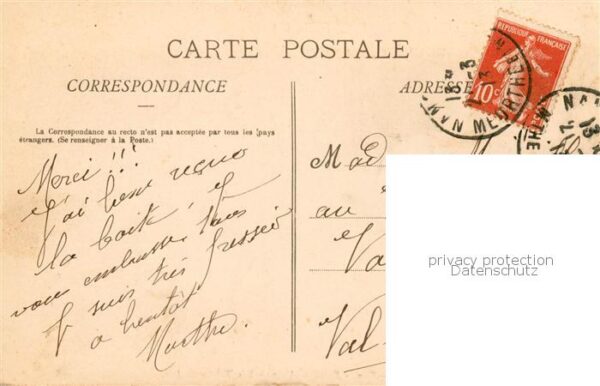 CARTE POSTALE
CORRESPONDANCE
ADRESSE
La Correspondance au recto n'est pas acceptée par tous les pays
étrangers. (Se renseigner à la Poste.)
REPUBLIQUE FRANÇAISE
10c
NAN MEURTHE
Merci !!!
J'ai bien reçue
la boite, &
vous embrasse tous
J suis très pressée
a bientôt
Marthe.
Mad
au
Va
Val-
privacy protection
Datenschutz